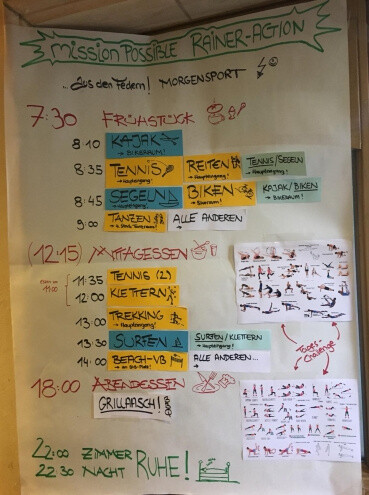 Mission Possible RAINER-ACTION
.. Aus den Federn! MORGENSPORT
7:30 FRÜHSTÜCK
8:10 KAJAK
→ BIKERAUM!
8:35 TENNIS REITEN TENNIS/SEGELN
→ Haupteingang! → Haupteingang! → Haupteingang!
8:45 SEGELN BIKEN KAJAK/BIKEN
→ Haupteingang! → Bikeraum! → BIKERAUM!
9:00 TANZEN ALLE ANDEREN
(12:15) MITTAGESSEN
11:35 TENNIS (2)
11:00
12:00 KLETTERN
13:00 TREKKING
→ Haupteingang!
13:30 SURFEN SURFEN/KLETTERN
→ Haupteingang! → Haupteingang!
14:00 BEACH-VB ALLE ANDEREN...
Tages-
Challenge
18:00 ABENDESSEN
GRILLAASCH!
22:00 ZIMMER
22:30 NACHT RUHE!